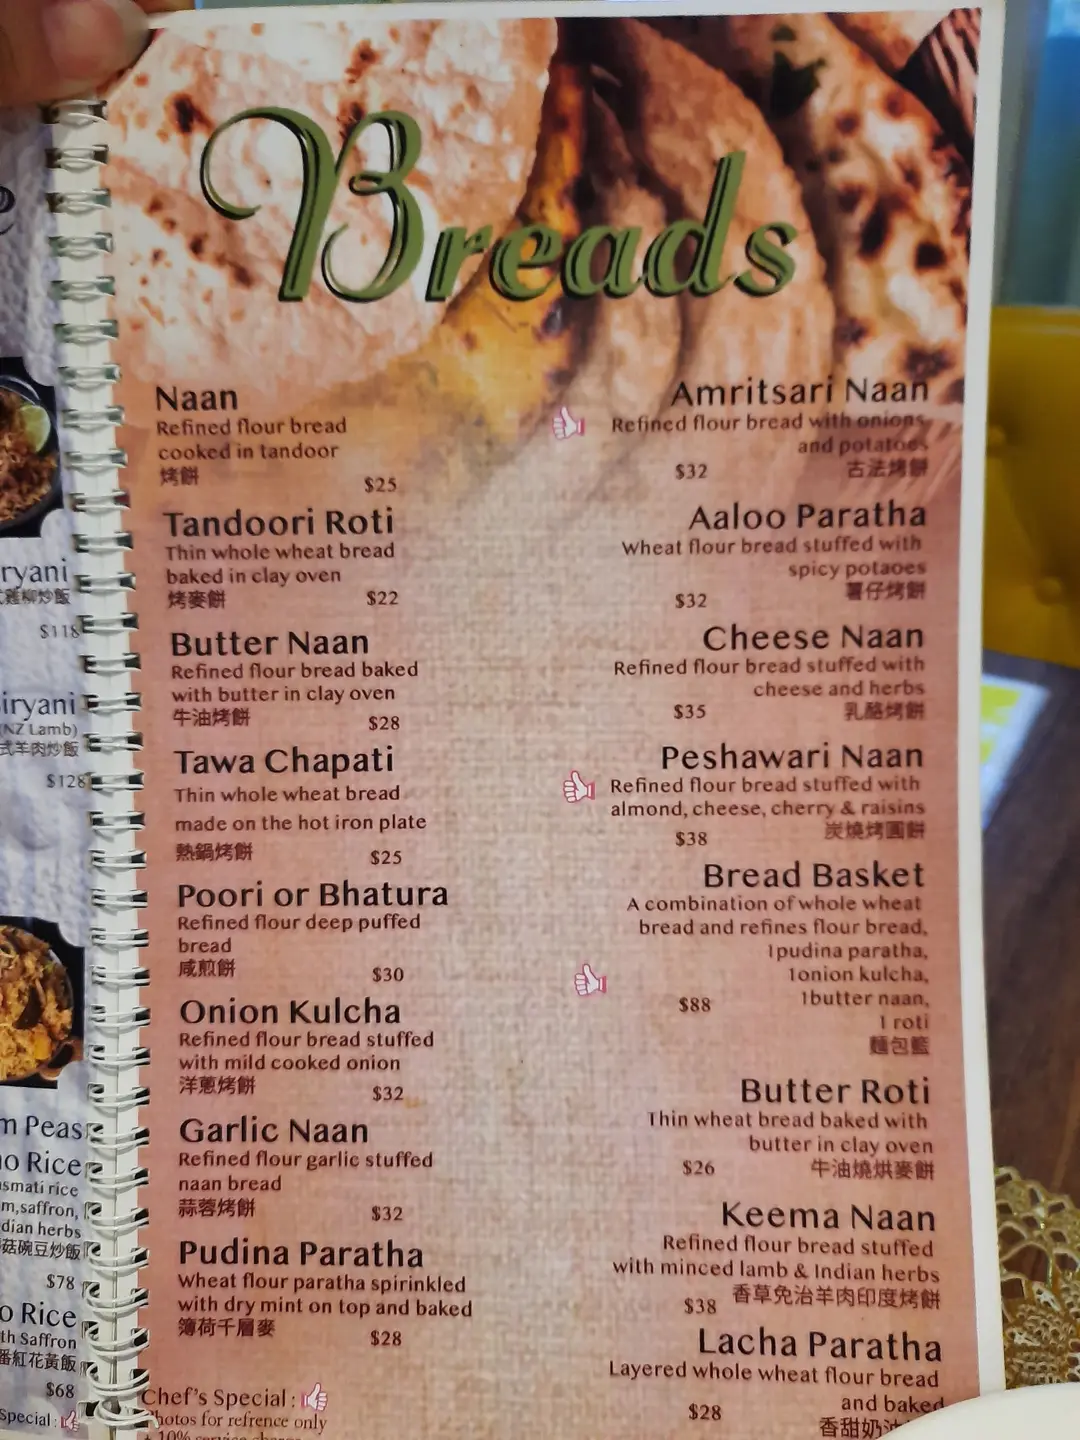 Breads
Naan
Refined flour bread
cooked in tandoor
烤餅
$25
Tandoori Roti
Thin whole wheat bread
baked in clay oven
烤麥餅
$22
Butter Naan
Refined flour bread baked
with butter in clay oven
牛油烤餅
$28
Tawa Chapati
Thin whole wheat bread
made on the hot iron plate
熱鍋烤餅
$25
Poori or Bhatura
Refined flour deep puffed
bread
咸煎餅
$30
Onion Kulcha
Refined flour bread stuffed
with mild cooked onion
洋蔥烤餅
$32
Garlic Naan
Refined flour garlic stuffed
naan bread
蒜蓉烤餅
$32
Pudina Paratha
Wheat flour paratha spirinkled
with dry mint on top and baked
簿荷千層麥
$28
Chef's Special :
Photos for refrence only
+ 10% service charge
Amritsari Naan
Refined flour bread with onions
and potatoes
古法烤餅
$32
Aaloo Paratha
Wheat flour bread stuffed with
spicy potaoes
薯仔烤餅
$32
Cheese Naan
Refined flour bread stuffed with
cheese and herbs
乳酪烤餅
$35
Peshawari Naan
Refined flour bread stuffed with
almond, cheese, cherry & raisins
炭燒烤圓餅
$38
Bread Basket
A combination of whole wheat
bread and refines flour bread,
1pudina paratha,
1onion kulcha,
1butter naan,
1 roti
麵包籃
$88
Butter Roti
Thin wheat bread baked with
butter in clay oven
牛油燒烘麥餅
$26
Keema Naan
Refined flour bread stuffed
with minced lamb & Indian herbs
香草免治羊肉印度烤餅
$38
Lacha Paratha
Layered whole wheat flour bread
and baked
香甜奶油
$28
ryani
式雞柳炒飯
$118
iryani
(NZ Lamb)
式羊肉炒飯
$128
m Peas
o Rice
smati rice
m,saffron,
dian herbs
菇碗豆炒飯
$78
o Rice
th Saffron
番紅花黃飯
$68
Special :